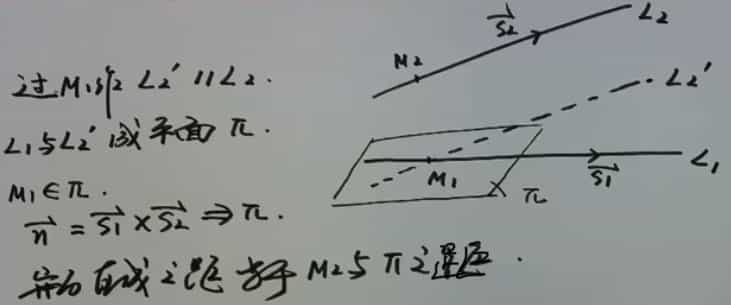 过M₁作 L₂′ // L₂.
L₁与L₂′成平面 π.
M₁ ∈ π.
n⃗ = s₁⃗ × s₂⃗ ⇒ π.
异面直线之距等于 M₂与π之距.
s₂⃗
L₂
M₂
L₂′
M₁
s₁⃗
L₁
π